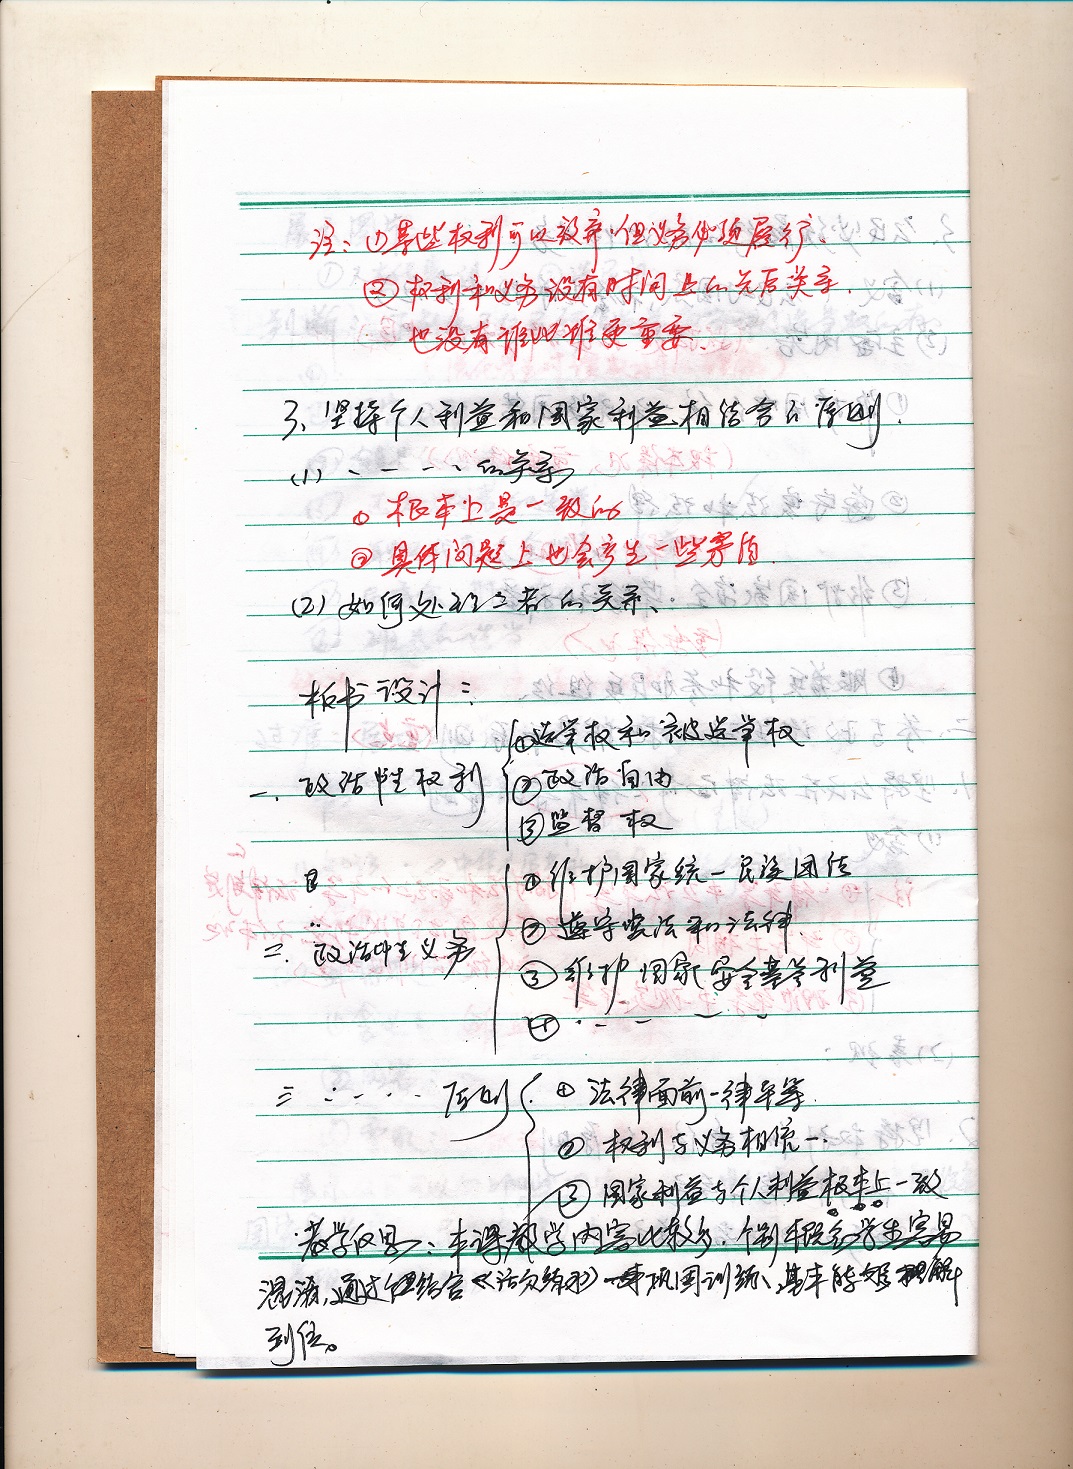 注：①某些权利可以放弃，但义务必须履行.
②权利和义务没有时间上的先后关系.
也没有谁比谁更重要.
3、坚持个人利益和国家利益相结合的原则.
(1)、----的关系
①根本上是一致的
②具体问题上也会产生一些矛盾.
(2)如何处理三者的关系、
板书设计：
一、政治性权利
①选举权和被选举权
②政治自由
③监督权
二、政治性义务
①维护国家统一民族团结
②遵守宪法和法律.
③维护国家安全荣誉利益
④.----
三.----原则
①法律面前一律平等.
②权利与义务相统一.
③国家利益与个人利益根本上一致
教学反思：本课教学内容比较多.个别概念学生容易
混淆,通过结合《活页练习》巩固训练、基本能理解
到位。